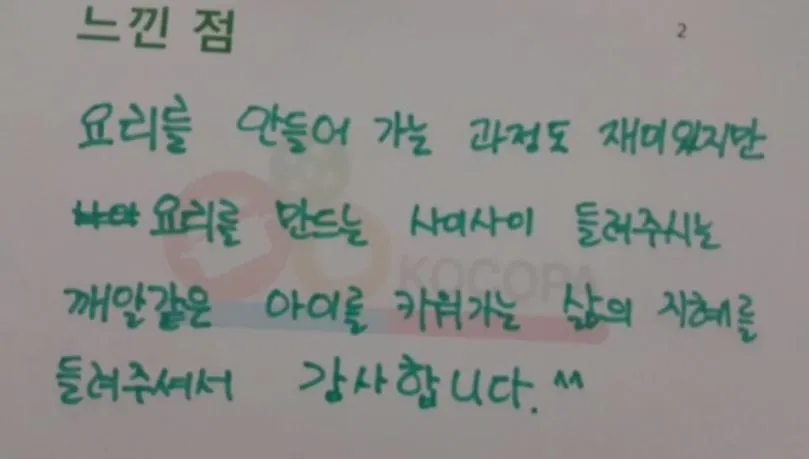 느낀 점
2
요리를 만들어 가는 과정도 재미있지만
요리를 만드는 사이사이 들려주시는
KOCOPA
깨알같은 아이를 키워가는 삶의 지혜를
들려주셔서 감사합니다.^^